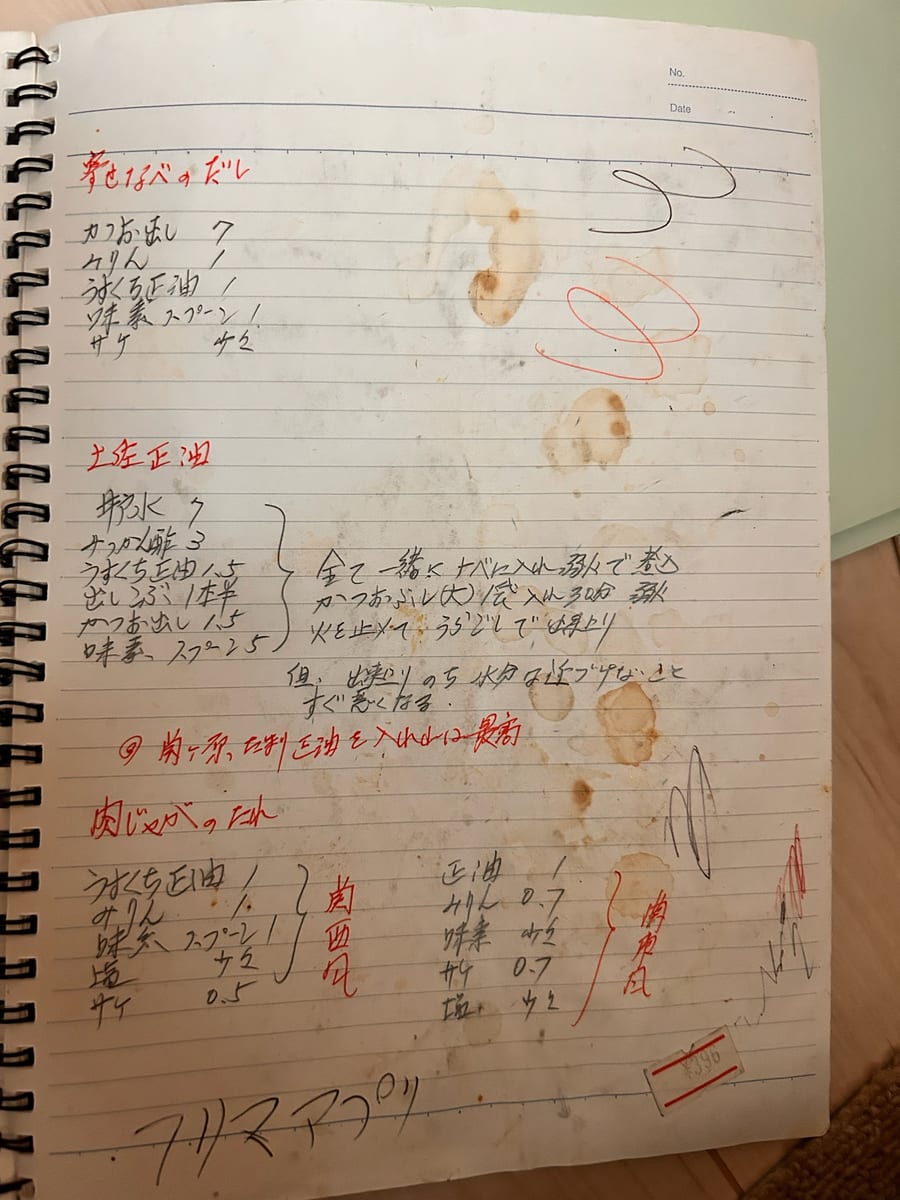 No.
Date
寄せなべのだし
かつお出し 7
みりん 1
うすくち正油 1
味素 スプーン 1
サケ 少々
土佐正油
水 7
みつかん酢 3
うすくち正油 1.5
出しこぶ 1本半
かつお出し 1.5
味素 スプーン 5
全て一緒に ナベに入れ 弱火で
かつおぶし(大) 1袋 入れ 30分 弱火
火を止めて、うらごしで 出来上り
但、出来上り のち 水分を近づけないこと
すぐ悪くなる.
関ヶ原 たまり正油を入れれば最高
肉じゃがのたれ
うすくち正油 1
みりん 1
味素 スプーン 1
塩 少々
サケ 0.5
関西風
正油 1
みりん 0.7
味素 少々
サケ 0.7
塩 少々
関東風
¥396
フリマアプリ